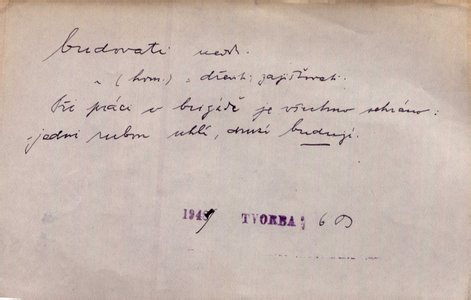 budovati nedk.
„ (horn.) „ dřevit; zajišťovati.
Při práci v brigádě je všechno sehráno:
jedni rubou uhlí, druzí budují.
1949 TVORBA 60